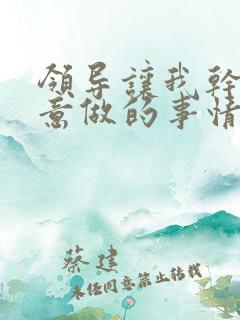 領导讓我幹
意做的事情
蔡建
未经同意禁止转载